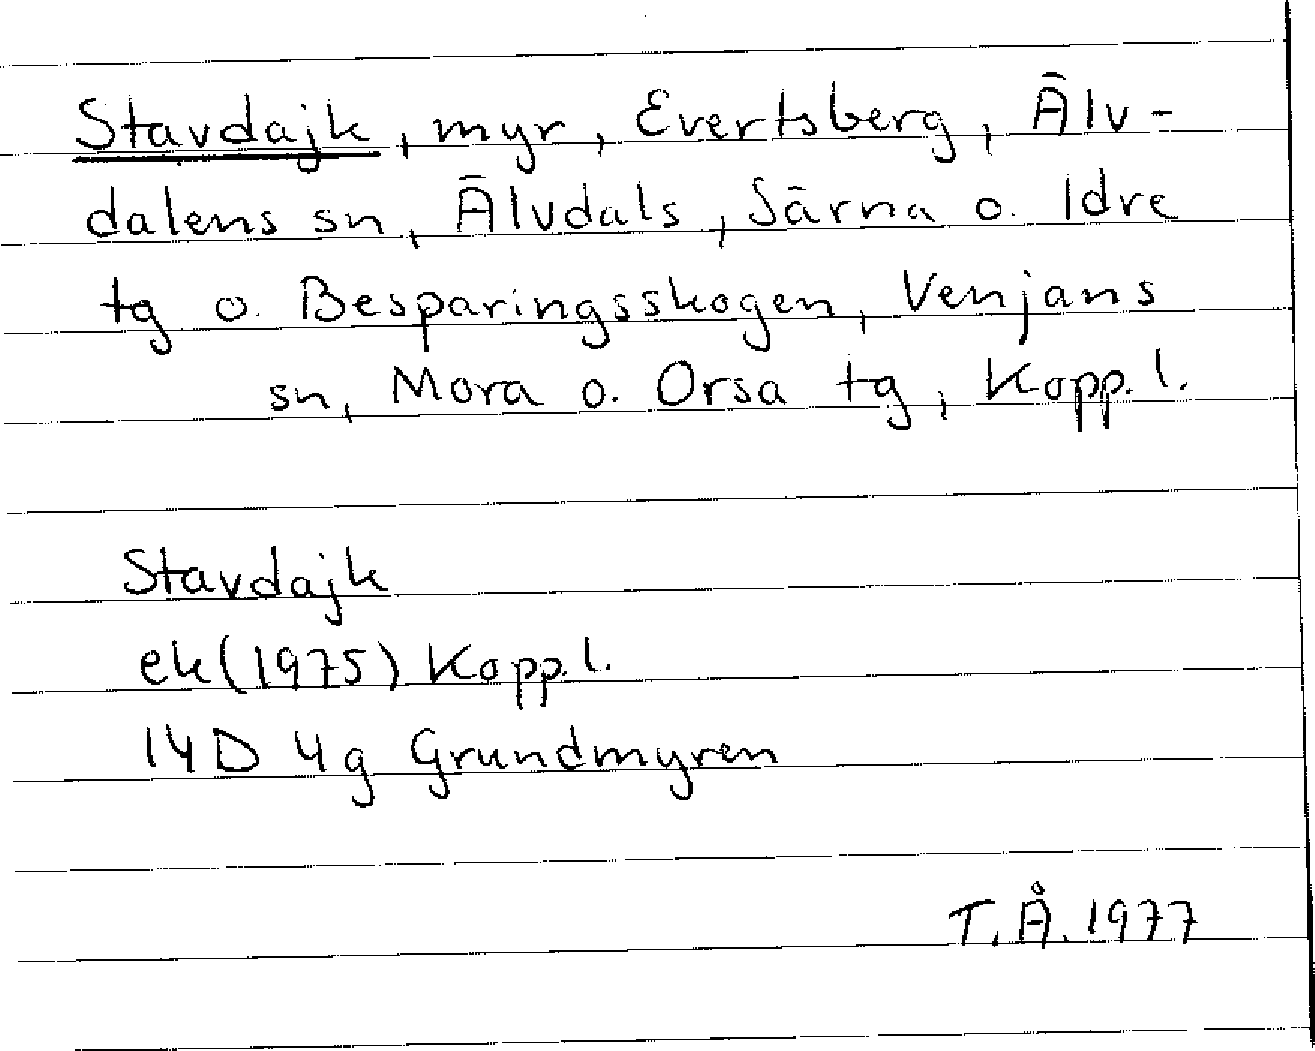 Stavdajk, myr, Evertsberg, Älv-
dalens sn, Älvdals, Särna o. Idre
tg o. Besparingsskogen, Venjans
sn, Mora o. Orsa tg, Kopp. l.
Stavdajk
ek (1975) Kopp. l.
14D 4g Grundmyren
T. Å. 1977